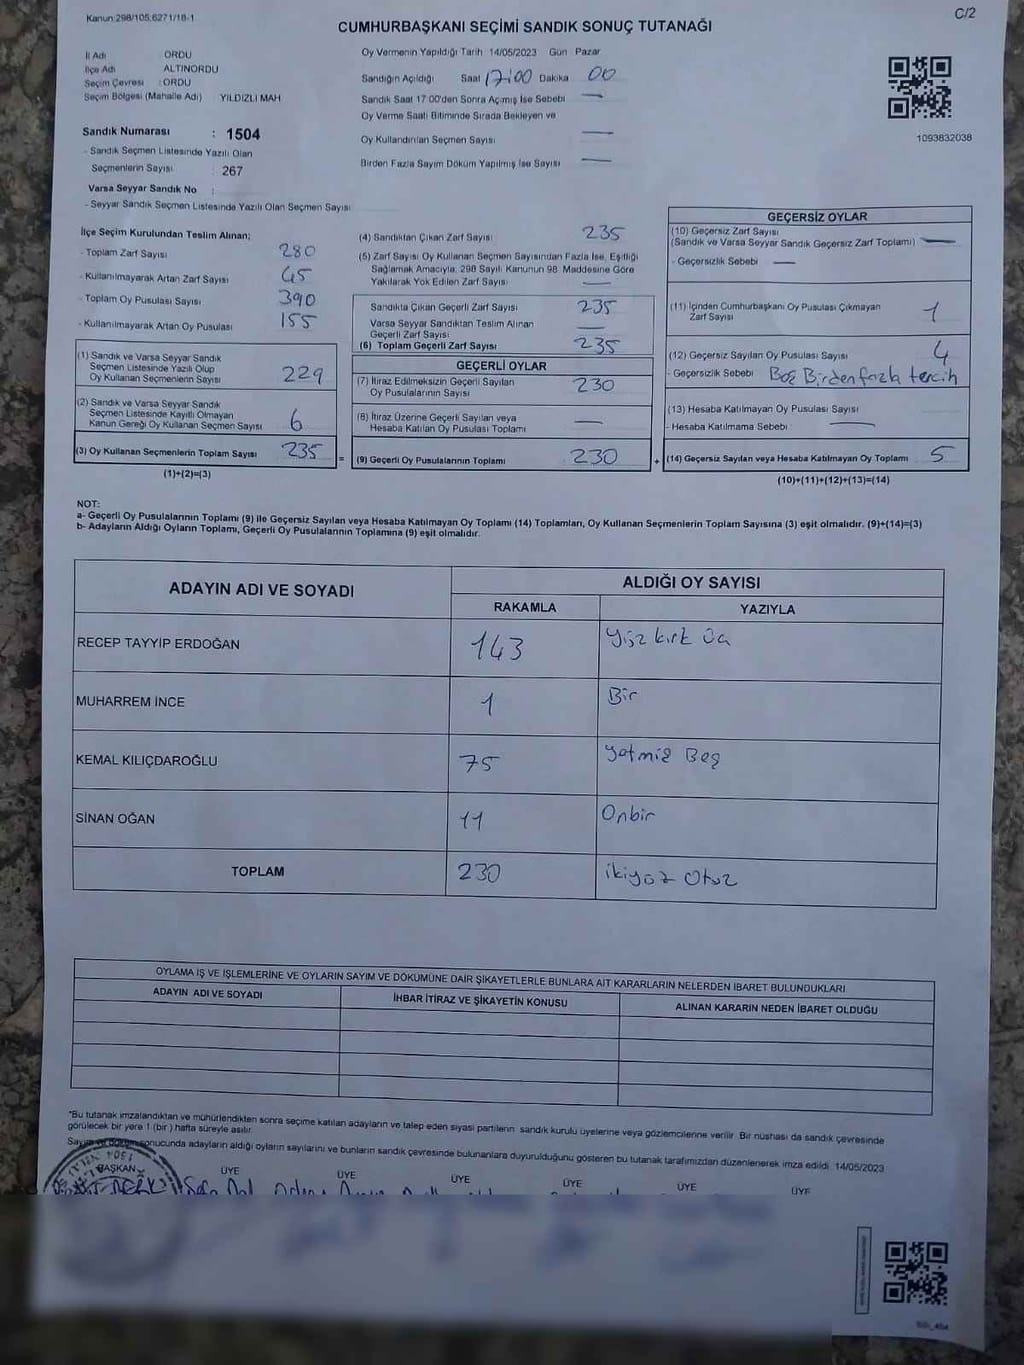 Kanun:298/105,6271/18-1
C/2
CUMHURBAŞKANI SEÇİMİ SANDIK SONUÇ TUTANAĞI
İl Adı ORDU
İlçe Adı ALTINORDU
Seçim Çevresi : ORDU
Seçim Bölgesi (Mahalle Adı) YILDIZLI MAH
Sandık Numarası : 1504
- Sandık Seçmen Listesinde Yazılı Olan
Seçmenlerin Sayısı 267
Varsa Seyyar Sandık No :
- Seyyar Sandık Seçmen Listesinde Yazılı Olan Seçmen Sayısı
Oy Vermenin Yapıldığı Tarih 14/05/2023 Gün Pazar
Sandığın Açıldığı Saat 17:00 Dakika 00
Sandık Saat 17:00'den Sonra Açımış İse Sebebi —
Oy Verme Saati Bitiminde Sırada Bekleyen ve
Oy Kullandırılan Seçmen Sayısı —
Birden Fazla Sayım Döküm Yapılmış İse Sayısı —
1093832038
İlçe Seçim Kurulundan Teslim Alınan;
- Toplam Zarf Sayısı 280
- Kullanılmayarak Artan Zarf Sayısı 45
- Toplam Oy Pusulası Sayısı 390
- Kullanılmayarak Artan Oy Pusulası 155
(1) Sandık ve Varsa Seyyar Sandık
Seçmen Listesinde Yazılı Olup
Oy Kullanan Seçmenlerin Sayısı 229
(2) Sandık ve Varsa Seyyar Sandık
Seçmen Listesinde Kayıtlı Olmayan
Kanun Gereği Oy Kullanan Seçmen Sayısı 6
(3) Oy Kullanan Seçmenlerin Toplam Sayısı 235
(1)+(2)=(3)
(4) Sandıktan Çıkan Zarf Sayısı 235
(5) Zarf Sayısı Oy Kullanan Seçmen Sayısından Fazla İse, Eşitliği
Sağlamak Amacıyla, 298 Sayılı Kanunun 98. Maddesine Göre
Yakılarak Yok Edilen Zarf Sayısı —
Sandıkta Çıkan Geçerli Zarf Sayısı 235
Varsa Seyyar Sandıktan Teslim Alınan
Geçerli Zarf Sayısı —
(6) Toplam Geçerli Zarf Sayısı 235
GEÇERLİ OYLAR
(7) İtiraz Edilmeksizin Geçerli Sayılan
Oy Pusulalarının Sayısı 230
(8) İtiraz Üzerine Geçerli Sayılan veya
Hesaba Katılan Oy Pusulası Toplamı —
= (9) Geçerli Oy Pusulalarının Toplamı 230
GEÇERSİZ OYLAR
(10) Geçersiz Zarf Sayısı
(Sandık ve Varsa Seyyar Sandık Geçersiz Zarf Toplamı) —
- Geçersizlik Sebebi —
(11) İçinden Cumhurbaşkanı Oy Pusulası Çıkmayan
Zarf Sayısı 1
(12) Geçersiz Sayılan Oy Pusulası Sayısı 4
- Geçersizlik Sebebi Boş Birden fazla tercih
(13) Hesaba Katılmayan Oy Pusulası Sayısı
- Hesaba Katılmama Sebebi : —
+ (14) Geçersiz Sayılan veya Hesaba Katılmayan Oy Toplamı 5
(10)+(11)+(12)+(13)=(14)
NOT:
a- Geçerli Oy Pusulalarının Toplamı (9) ile Geçersiz Sayılan veya Hesaba Katılmayan Oy Toplamı (14) Toplamları, Oy Kullanan Seçmenlerin Toplam Sayısına (3) eşit olmalıdır. (9)+(14)=(3)
b- Adayların Aldığı Oyların Toplamı, Geçerli Oy Pusulalarının Toplamına (9) eşit olmalıdır.
ADAYIN ADI VE SOYADI
ALDIĞI OY SAYISI
RAKAMLA YAZIYLA
RECEP TAYYİP ERDOĞAN 143 Yüz kırk üç
MUHARREM İNCE 1 Bir
KEMAL KILIÇDAROĞLU 75 Yetmiş Beş
SİNAN OĞAN 11 Onbir
TOPLAM 230 ikiyüz Otuz
OYLAMA İŞ VE İŞLEMLERİNE VE OYLARIN SAYIM VE DÖKÜMÜNE DAİR ŞİKAYETLERLE BUNLARA AİT KARARLARIN NELERDEN İBARET BULUNDUKLARI
ADAYIN ADI VE SOYADI İHBAR İTİRAZ VE ŞİKAYETİN KONUSU ALINAN KARARIN NEDEN İBARET OLDUĞU
*Bu tutanak imzalandıktan ve mühürlendikten sonra seçime katılan adayların ve talep eden siyasi partilerin sandık kurulu üyelerine veya gözlemcilerine verilir. Bir nüshası da sandık çevresinde
görülecek bir yere 1 (bir) hafta süreyle asılır.
Sayım ve döküm sonucunda adayların aldığı oyların sayılarını ve bunların sandık çevresinde bulunanlara duyurulduğunu gösteren bu tutanak tarafımızdan düzenlenerek imza edildi. 14/05/2023
BAŞKAN ÜYE ÜYE ÜYE ÜYE ÜYE ÜYE